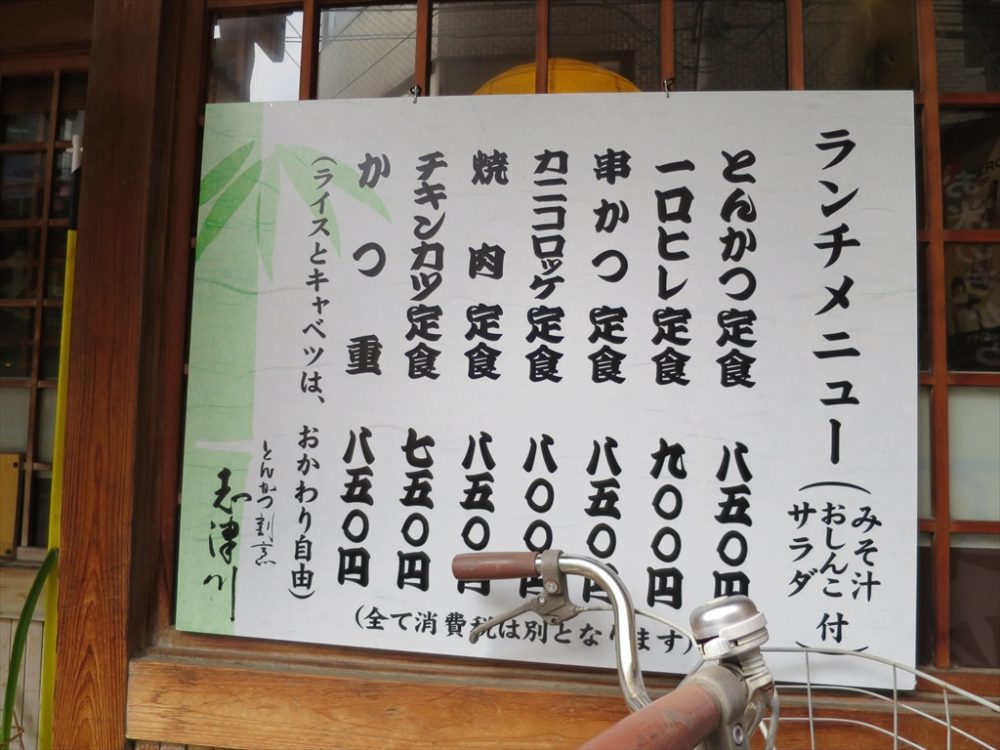 ランチメニュー(みそ汁 おしんこ サラダ 付)
とんかつ定食 八五〇円
一口ヒレ定食 九〇〇円
串かつ定食 八五〇円
カニコロッケ定食 八〇〇
焼肉定食 八五〇円
チキンカツ定食 七五〇円
かつ重 八五〇円
(ライスとキャベツは、おかわり自由)
(全て消費税は別となります)
とんかつ割烹
志津川